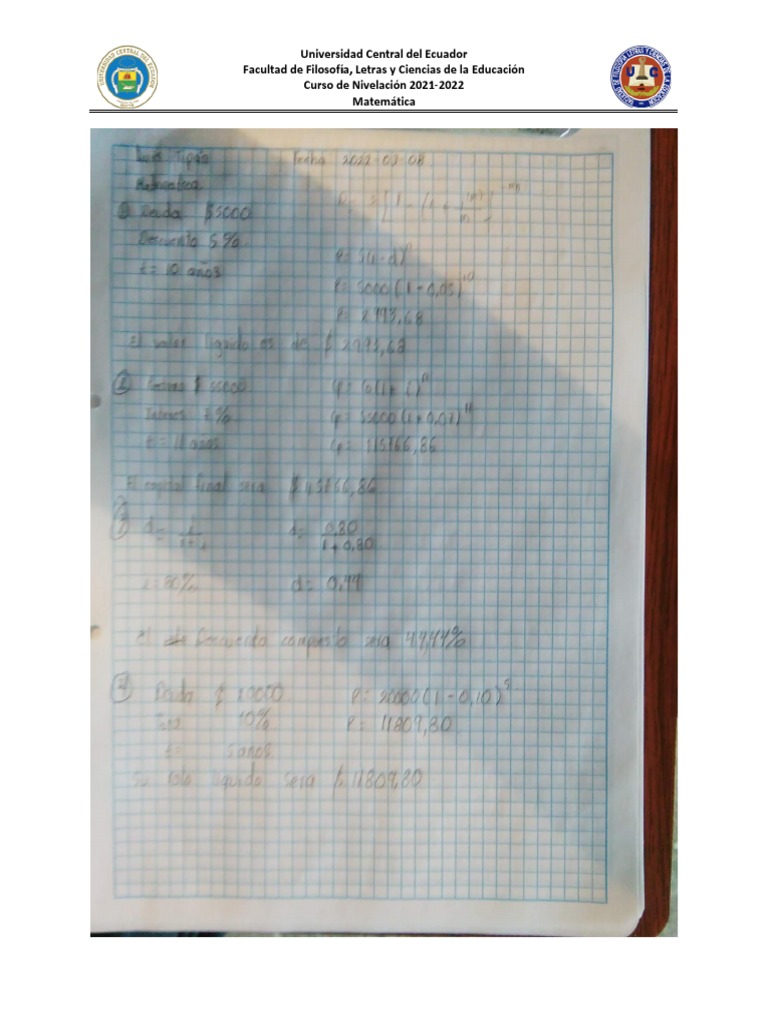 Universidad Central del Ecuador
Facultad de Filosofía, Letras y Ciencias de la Educación
Curso de Nivelación 2021-2022
Matemática
Fecha 2022-03-08
Matematica
① Deuda $5000
Descuento 5%
t = 10 años
P = S(1-d)^n
P = 5000(1-0,05)^10
P = 2993,68
El valor liquido es de $ 2993,68
② $ 55000
Interes 7%
t = 11 años
Cf = Co(1+i)^n
Cf = 55000(1+0,07)^11
Cf = 115766,86
El capital final sera $ 115766,86
d =
d = 0,80 / 1+0,80
i = 80%
d = 0,44
el Descuento compuesto sera 44,44%
Deuda $ 20000
P = 20000(1-0,10)^5
10%
P = 11809,80
t = 5 años
Su liquido sera $ 11809,80